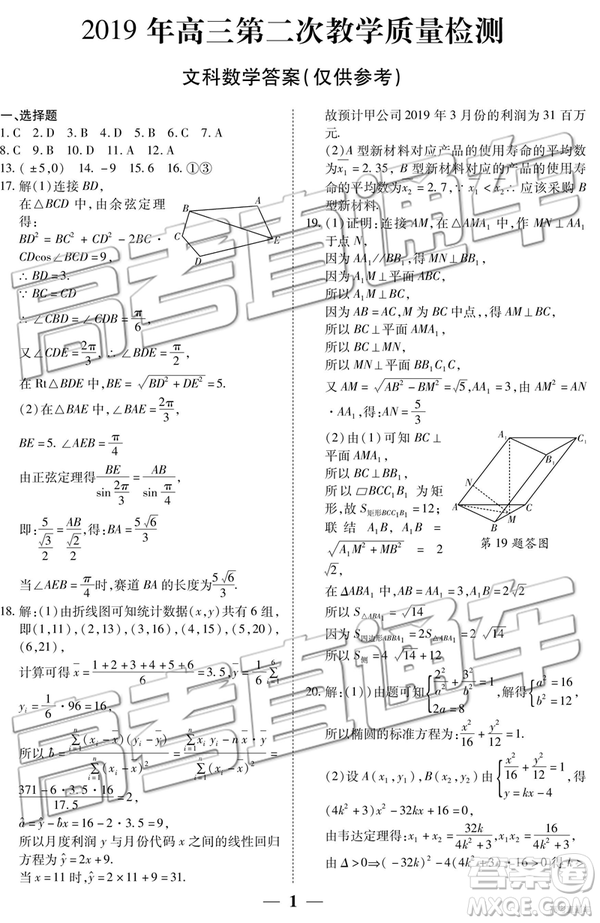 2019 年高三第二次教学质量检测
文科数学答案(仅供参考)
一、选择题
1. C 2. D 3. B 4. D 5. B 6. C 7. A
8. C 9. B 10. A 11. D 12. A
13. (±5,0) 14. -9 15. 6 16. ①③
17. 解(1)连接 BD,
在△BCD 中,由余弦定理
得:
BD² = BC² + CD² - 2BC ·
CDcos∠BCD = 9,
∴ BD = 3.
∵ BC = CD
∴ ∠CBD = ∠CDB = π/6
又∠CDE = 2π/3, ∴ ∠BDE = π/2
在 Rt△BDE 中, BE = √(BD² + DE²) = 5.
(2)在△BAE 中, ∠BAE = 2π/3,
BE = 5. ∠AEB = π/4
由正弦定理得 BE/sin(2π/3) = AB/sin(π/4)
即: 5/(√3/2) = AB/(√2/2), 得: BA = 5√6/3
当∠AEB = π/4时,赛道 BA 的长为 5√6/3.
18. 解:(1)由折线图可知统计数据(x,y)共有 6 组,
即(1,11),(2,13),(3,16),(4,15),(5,20),
(6,21),
计算可得 x̄ = (1+2+3+4+5+6)/6 = 3.5, 1/6 Σ(i=1,6)
yᵢ = 1/6 · 96 = 16,
所以 b̂ = Σ(i=1,n)(xᵢ - x̄)(yᵢ - ȳ)/Σ(i=1,n)(xᵢ - x̄)² = Σ(i=1,n) xᵢ yᵢ - n x̄ · ȳ/Σ(i=1,n)(xᵢ - x̄)² =
(371 - 6 · 3.5 · 16)/17.5 = 2,
â = ȳ - b̂x̄ = 16 - 2 · 3.5 = 9,
所以月度利润 y 与月份代码 x 之间的线性回归
方程为 ŷ = 2x + 9.
当 x = 11 时, ŷ = 2 × 11 + 9 = 31.
故预计甲公司 2019 年 3 月份的利润为 31 百万
元.
(2) A 型新材料对应产品的使用寿命的平均数
为x̄₁ = 2.35, B 型新材料对应的产品的使用寿命
的平均数为x̄₂ = 2.7, ∵ x̄₁ < x̄₂ ∴ 应该采购 B
型新材料.
19. (1)证明:连接 AM, 在△AMA₁ 中, 作 MN⊥AA₁
于点 N,
因为 AA₁//BB₁, 得 MN⊥BB₁,
因为 A₁M⊥平面 ABC,
所以 A₁M⊥BC,
因为 AB = AC, 得 AM⊥BC,
所以 BC⊥平面 AMA₁,
所以 BC⊥MN,
所以 MN⊥平面 BCC₁B₁,
又 AM = √(AB² - BM²) = √5, AA₁ = 3, 由 AM² = AN
· AA₁, 得: AN = 5/3
(2)由(1)可知 BC⊥
平面 AMA₁
所以 BC⊥BB₁
所以▱BCC₁B₁ 为矩
形,故 S矩形BCC₁B₁ = 12;
联结 A₁B, A₁B =
√(A₁M² + BM²) = 2√2
在△ABA₁ 中, AB = 3, AA₁ = 3, A₁B = 2√2
所以 S△ABA₁ = √14
所以 S四边形ABB₁A₁ = 2S△ABA₁ = 2√14
所以 S侧 = 4√14 + 12
第 19 题答图
20. 解:(1)由题可知{2/a² + 3/b² = 1/2, 2a = 8, 解得{a² = 16, b² = 12,
所以椭圆的标准方程为: x²/16 + y²/12 = 1;
(2)设 A(x₁,y₁),B(x₂,y₂)由{x²/16 + y²/12 = 1, y = kx - 4, 得:
(4k² + 3)x² - 32kx + 16 = 0
由韦达定理得: x₁ + x₂ = 32k/(4k² + 3) x₁x₂ = 16/(4k² + 3)
由 Δ>0⇒(-32k)² - 4(4k² + 3) · 16>0 得 k>
1
高考直通车
高考直通车